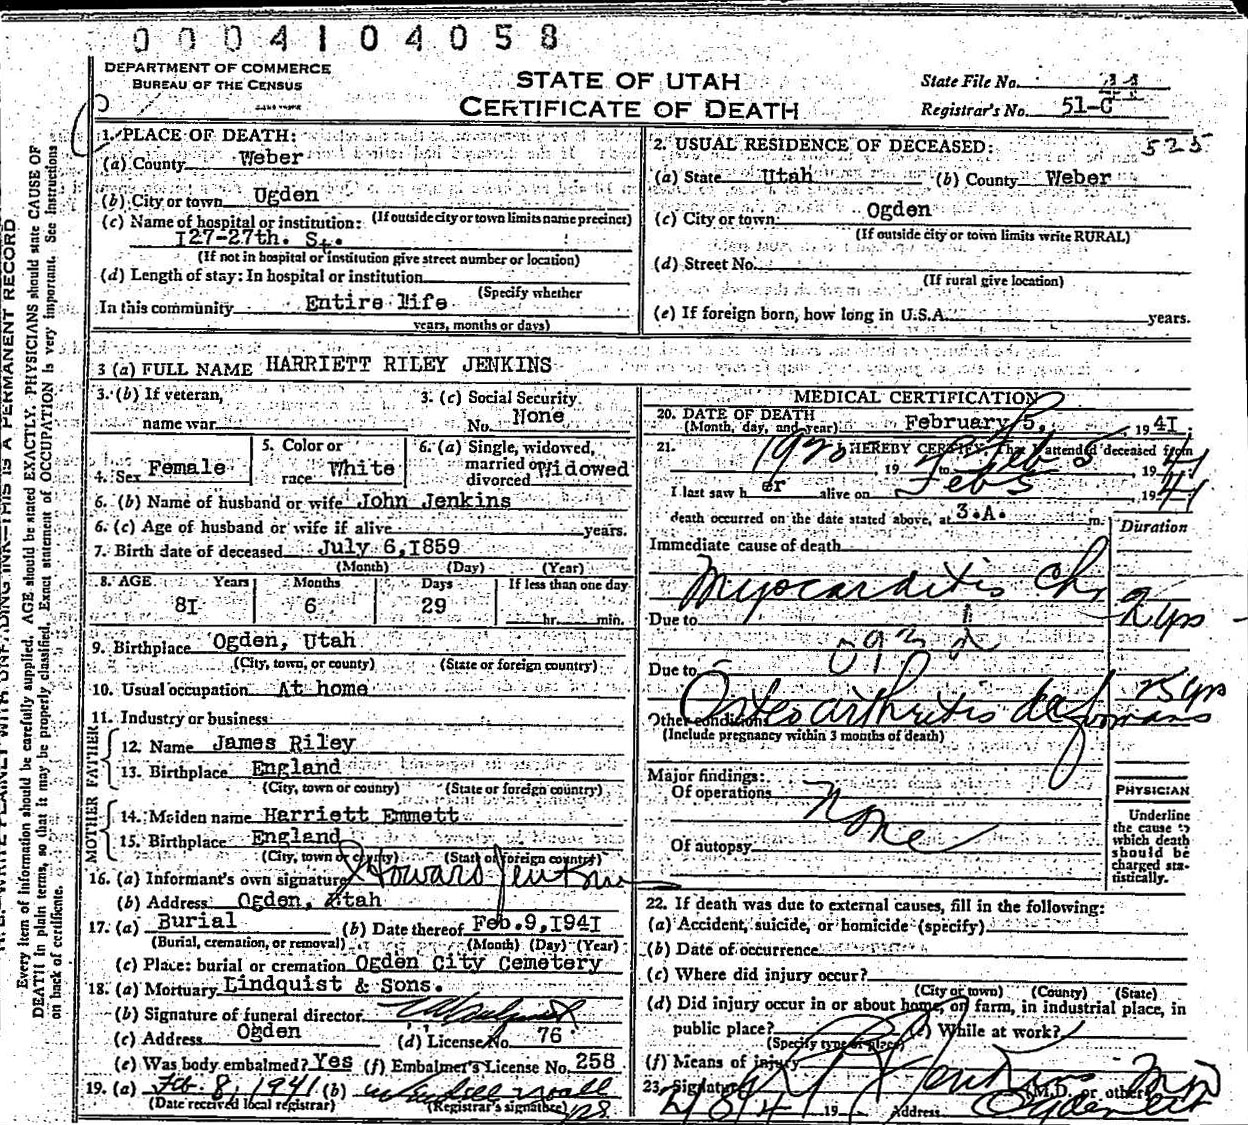 0004104058
DEPARTMENT OF COMMERCE
BUREAU OF THE CENSUS
STATE OF UTAH
CERTIFICATE OF DEATH
State File No.
Registrar's No. 51-C
525
1. PLACE OF DEATH:
(a) County Weber
(b) City or town Ogden
(If outside city or town limits name precinct)
(c) Name of hospital or institution:
I27-27th. St.
(If not in hospital or institution give street number or location)
(d) Length of stay: In hospital or institution
(Specify whether
In this community Entire life
years, months or days)
2. USUAL RESIDENCE OF DECEASED:
(a) State Utah (b) County Weber
(c) City or town Ogden
(If outside city or town limits write RURAL)
(d) Street No.
(If rural give location)
(e) If foreign born, how long in U.S.A. years.
3 (a) FULL NAME HARRIETT RILEY JENKINS
3. (b) If veteran,
name war
3. (c) Social Security
No. None
4. Sex Female
5. Color or
race White
6. (a) Single, widowed,
married or
divorced Widowed
6. (b) Name of husband or wife John Jenkins
6. (c) Age of husband or wife if alive years.
7. Birth date of deceased July 6,1859
(Month) (Day) (Year)
8. AGE Years Months Days If less than one day
8I 6 29 hr. min.
9. Birthplace Ogden, Utah
(City, town, or county) (State or foreign country)
10. Usual occupation At home
11. Industry or business
FATHER
12. Name James Riley
13. Birthplace England
(City, town or county) (State or foreign country)
MOTHER
14. Maiden name Harriett Emmett
15. Birthplace England
(City, town or county) (State or foreign country)
16. (a) Informant's own signature Howard Jenkins
(b) Address Ogden, Utah
17. (a) Burial (b) Date thereof Feb.9,I94I
(Burial, cremation, or removal) (Month) (Day) (Year)
(c) Place: burial or cremation Ogden City Cemetery
18. (a) Mortuary Lindquist & Sons.
(b) Signature of funeral director
(c) Address Ogden (d) License No. 76
(e) Was body embalmed? Yes (f) Embalmer's License No. 258
19. (a) Feb. 8, 1941 (b)
(Date received local registrar) (Registrar's signature)
MEDICAL CERTIFICATION
20. DATE OF DEATH February 5, 194I
(Month, day, and year)
21. I HEREBY CERTIFY, That I attended deceased from
1920 19 to Feb 5 1941
I last saw her alive on Feb 5 1941
death occurred on the date stated above, at 3.A. m.
Duration
Immediate cause of death
Myocarditis Ch 2 yrs
Due to
093 d
Due to
Osteoarthritis deformans 25 yrs
Other conditions
(Include pregnancy within 3 months of death)
Major findings:
Of operations None
Of autopsy
PHYSICIAN
Underline
the cause to
which death
should be
charged sta-
tistically.
22. If death was due to external causes, fill in the following:
(a) Accident, suicide, or homicide (specify)
(b) Date of occurrence
(c) Where did injury occur?
(City or town) (County) (State)
(d) Did injury occur in or about home, on farm, in industrial place, in
public place? (e) While at work?
(Specify type of place)
(f) Means of injury
23. Signature Jenkins MD
M.D. or other
19 Address Ogden
WRITE PLAINLY WITH UNFADING INK—THIS IS A PERMANENT RECORD
Every item of information should be carefully supplied. AGE should be stated EXACTLY. PHYSICIANS should state CAUSE OF
DEATH in plain terms, so that it may be properly classified. Exact statement of OCCUPATION is very important. See instructions
on back of certificate.